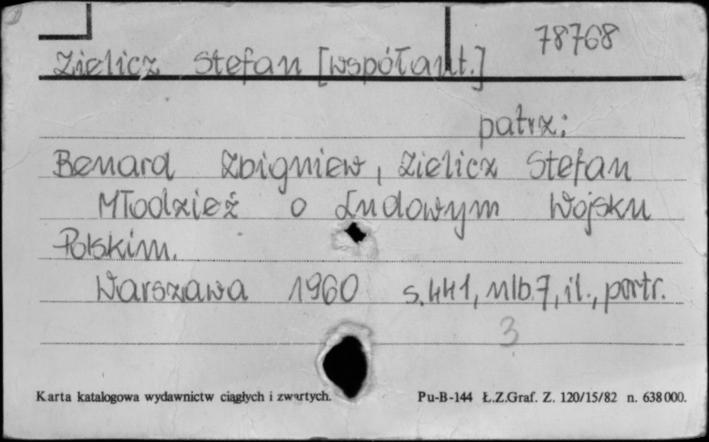 78768
Zielicz Stefan [współaut.]
patrz:
Benard Zbigniew, Zielicz Stefan
Młodzież o Ludowym Wojsku
Polskim.
Warszawa 1960 s.441, nlb.7, il., portr.
3
Karta katalogowa wydawnictw ciągłych i zwartych. Pu-B-144 Ł.Z.Graf. Z. 120/15/82 n. 638000.